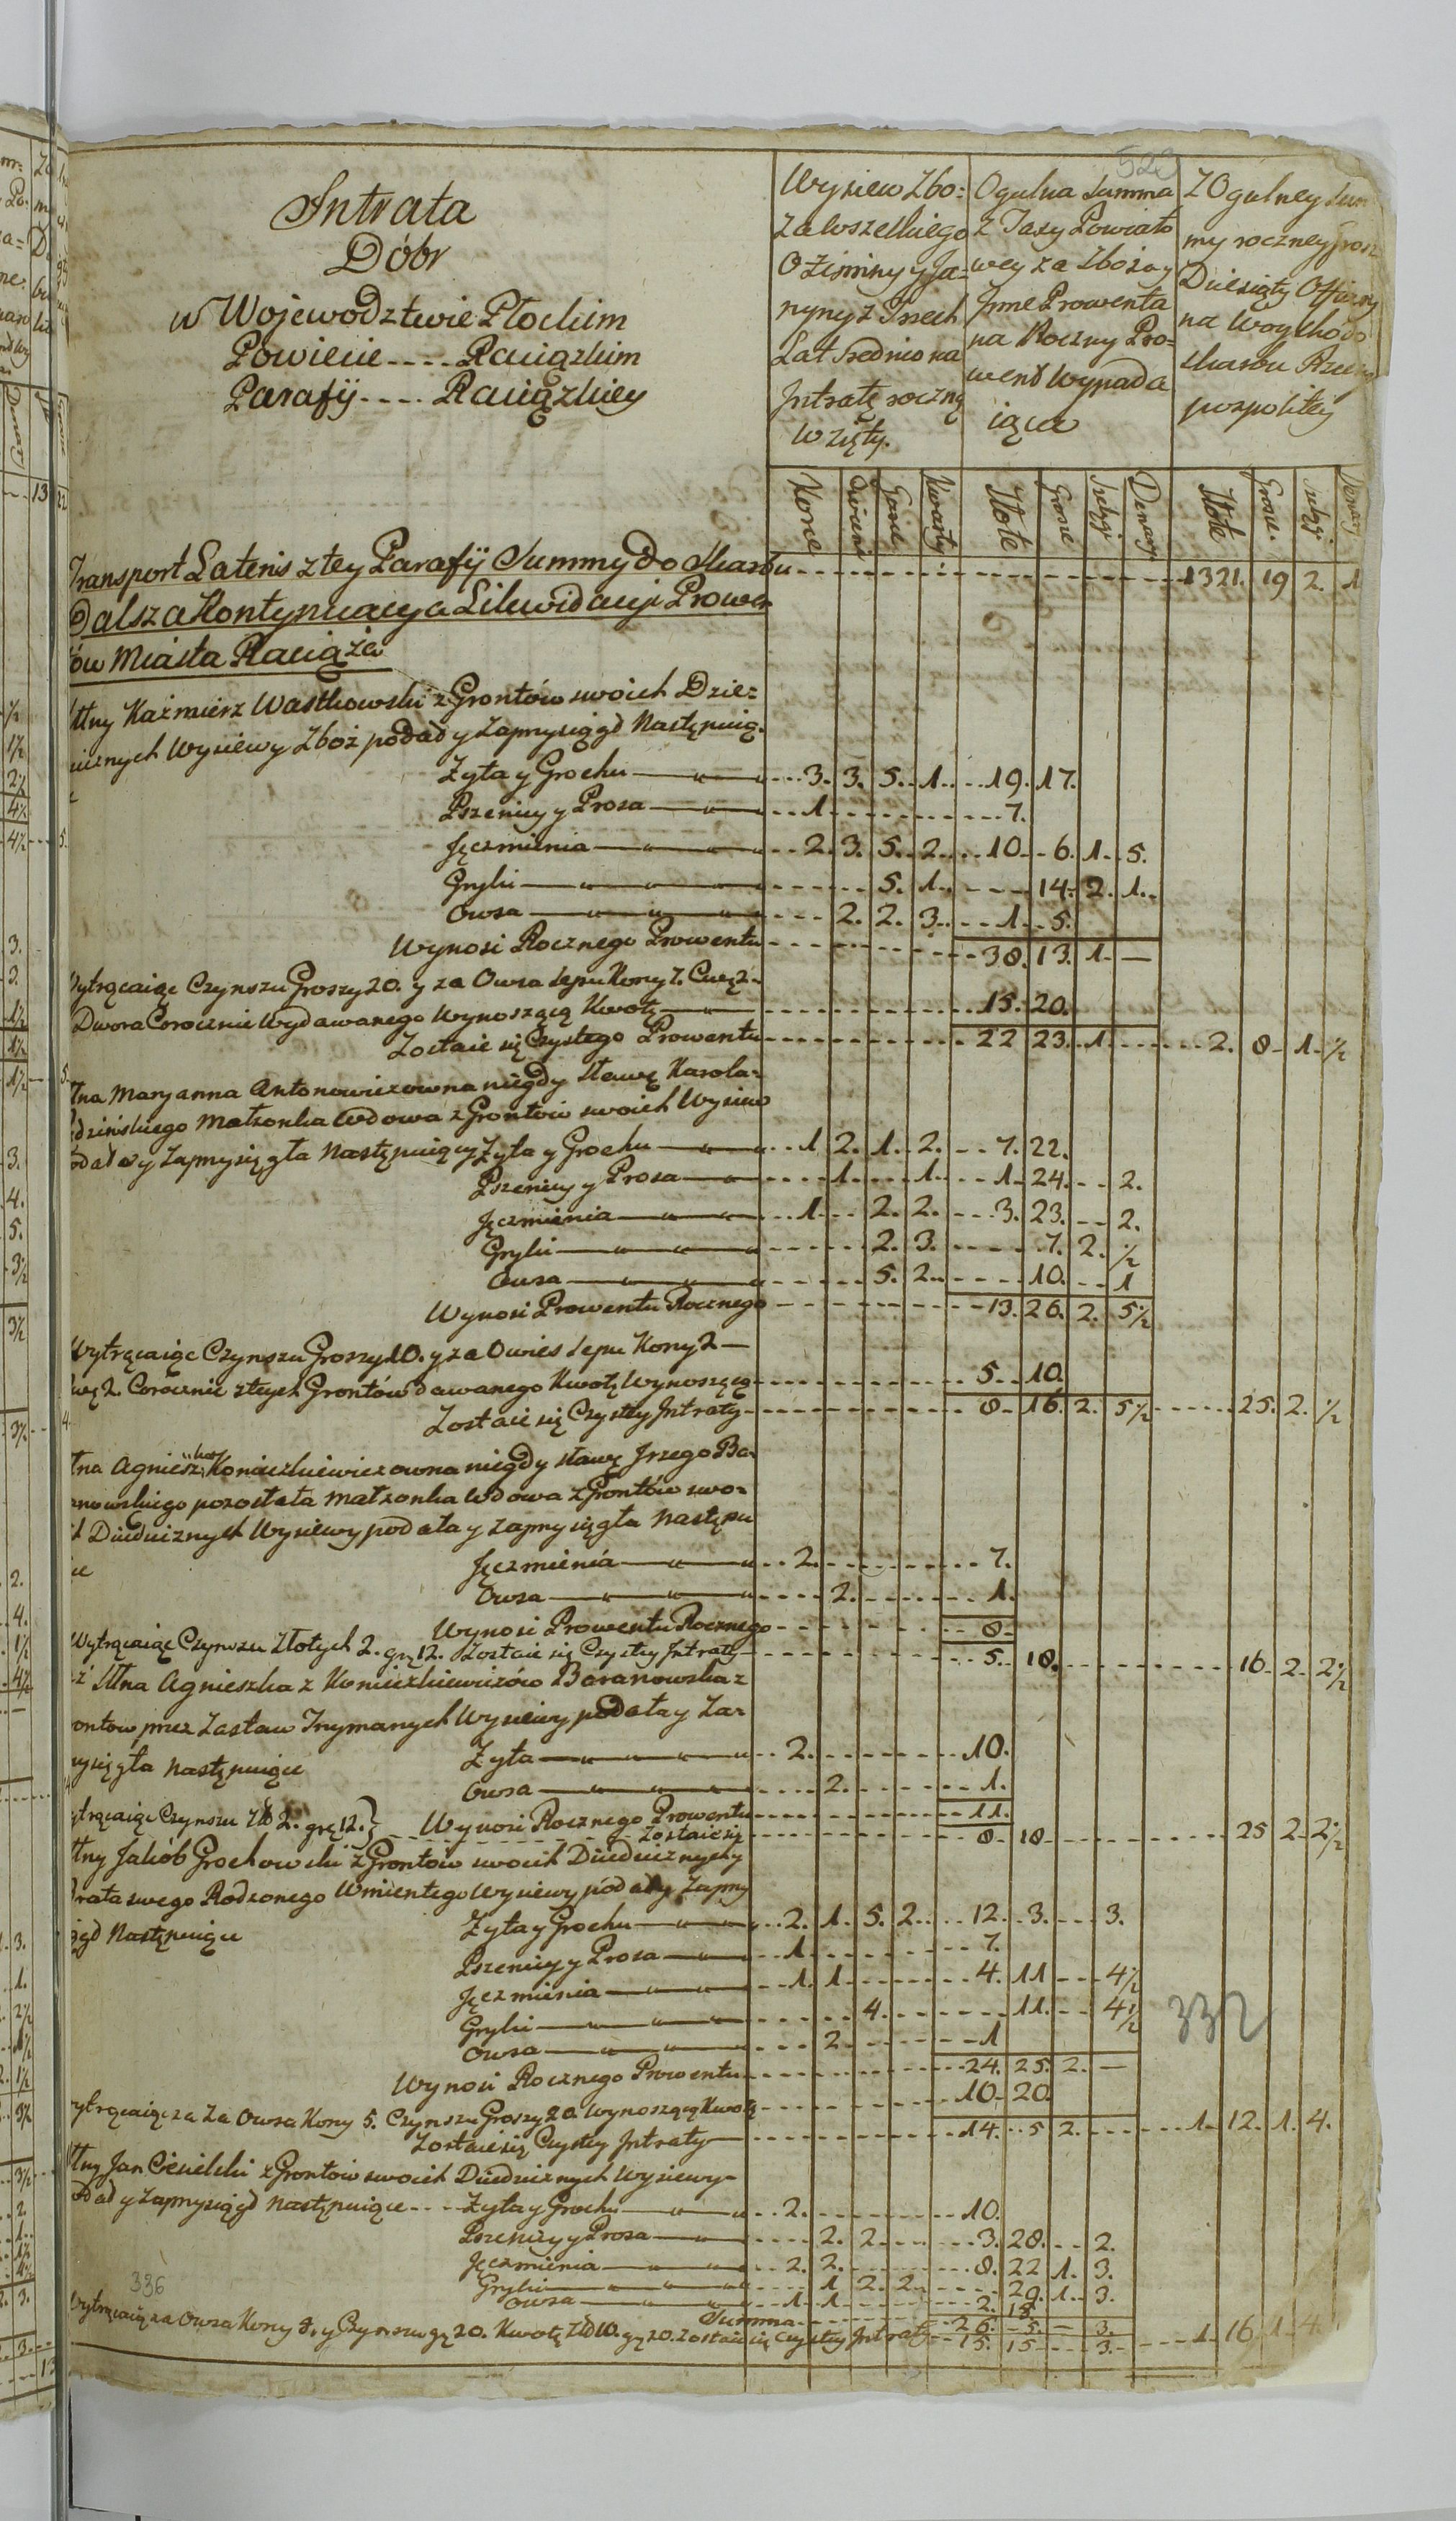 523
Intrata
Dobr
w Wojewodztwie Płockim
Powiecie .... Raciązkim
Parafij .... Raciązkiey
Wysiew Zbo=
Za wszelkiego
Oziminy y Ja=
rzyny z Trzech
Lat Srednio na
Intratę roczną
wzięty.
Ogulna Summa
z Taxy Powiato
wey za Zboża y
Jnne Prowenta
na Roczny Pro=
went wypada
iąca
Z Ogulney Sum
my roczney grosz
Dziesiąty Offiary
na Wzychód do
Skarbu Rzeczy
pospolitey
Korce Cwierci Garce Kwarty Złote Grosze Szelągi Denary Złote Grosze. Szelągi Denary
Transport Lateris z tey Parafij Summy do Skarbu 1321. 19 2. 1
Dalsza Kontynuacya Likwidacyi Prowen
ów Miasta Raciąża
Ur. Kazmierz Wastkowski z Grontów swoich Dzie=
icznych Wysiewy Zboż podał y Zaprzysiągł Następuią.
Żyta y Grochu 3. 3. 5. 1. 19. 17.
Pszenicy y Prosa 1 7.
Jęczmienia 2. 3. 5. 2. 10. 6. 1. 5.
Gryki 5. 1. 14. 2. 1.
Owsa 2. 2. 3. 1. 5.
Wynosi Rocznego Prowentu 38. 13. 1. —
Wytrącaiąc Czynszu Groszy 20. y za Owsa Sepu Korcy 7. Cwę 2.
Dwora Corocznie Wydawanego Wynoszącą Kwotę 15. 20.
Zostaie się Czystego Prowentu 22 23. 1. 2. 8 1. ½
Maryanna Antonowiczowna niegdy Sławę Karola=
dzińskiego Małżonka Wdowa z Grontów swoich Wysiew
odała y Zaprzysięgła Następuiący Żyta y Grochu 1 2. 1. 2. 7. 22.
Pszenicy y Prosa 1. 1. 1. 24. 2.
Jęczmienia 1 2. 2. 3. 23. 2.
Gryki 2. 3. 7. 2. ½
Owsa 5. 2. 10. 1
Wynosi Prowentu Rocznego 13. 26. 2. 5½
Wytrącaiąc Czynszu Groszy 10. y za Owies Sepu Korcy 2 —
Cwę 2. Corocznie z tych Grontów dawanego Kwotę Wynoszącą 5. 10.
Zostaie się Czystey Intraty 8. 16. 2. 5½ 25. 2. ½
Agnieszka Koniczkiewiczowna niegdy sławę Jrzego Ba=
anowskiego pozostała Małżonka Wdowa z Grontów swo=
Dziedzicznych Wysiewy podała y zaprzysięgła Nastepu
ie
Jęczmienia 2. 7.
Owsa 2. 1.
Wynosi Prowentu Rocznego 8.
Wytrącaiąc Czynszu Złotych 2. grę 12. Zostaie się Czystey Intraty 5. 18. 16. 2. 2½
Agnieszka z Koniczkiewiczów Baranowska z
rontow przez Zastaw Trzymanych Wysiewy podała y Za=
rzysięgła Następuiące Żyta 2. 10.
Owsa 2. 1.
Wynosi Rocznego Prowentu 11.
ytrącaiąc Czynszu Złł 2. grę 12. } Zostaie się 8 18 25 2 2½
Jakób Grochowski z Grontów swoich Dziedzicznych y
Brata swego Rodzonego Wmientego Wysiewy podał y Zaprzy
iągł Następuiące Żyta y Grochu 2. 1. 5. 2. 12. 3. 3.
Pszenicy y Prosa 1. 7.
Jęczmienia 1. 1. 4. 11 4½
Gryki 4. 11. 4½
Owsa 2. 1
332
Wynosi Rocznego Prowentu 24. 25. 2. —
ytrącaiąc za Za Owsa Korcy 5. Czynszu Groszy 20. Wynoszącą Kwotę 10. 20.
Zostaie się Czystey Intraty 14. 5 2. 1. 12. 1. 4.
Jan Ciesielski z Grontów swoich Dziedzicznych Wysiewy
odał y Zaprzysiągł Następuiące Żyta y Grochu 2. 10.
Pszenicy y Prosa 2. 2. 3. 28. 2.
Jęczmienia 2. 2. 8. 22 1. 3.
336
Gryki 1 2. 2. 29. 1. 3.
Owsa 1. 1. 2. 15.
Summa 26. 5. — 3.
Wytrącaiąc za Owsa Korcy 8. y Czynszu grę 20. Kwotę Złł 10. grę 20. Zostaie się Czystey Intraty 15. 15 3. 1. 16 1. 4.